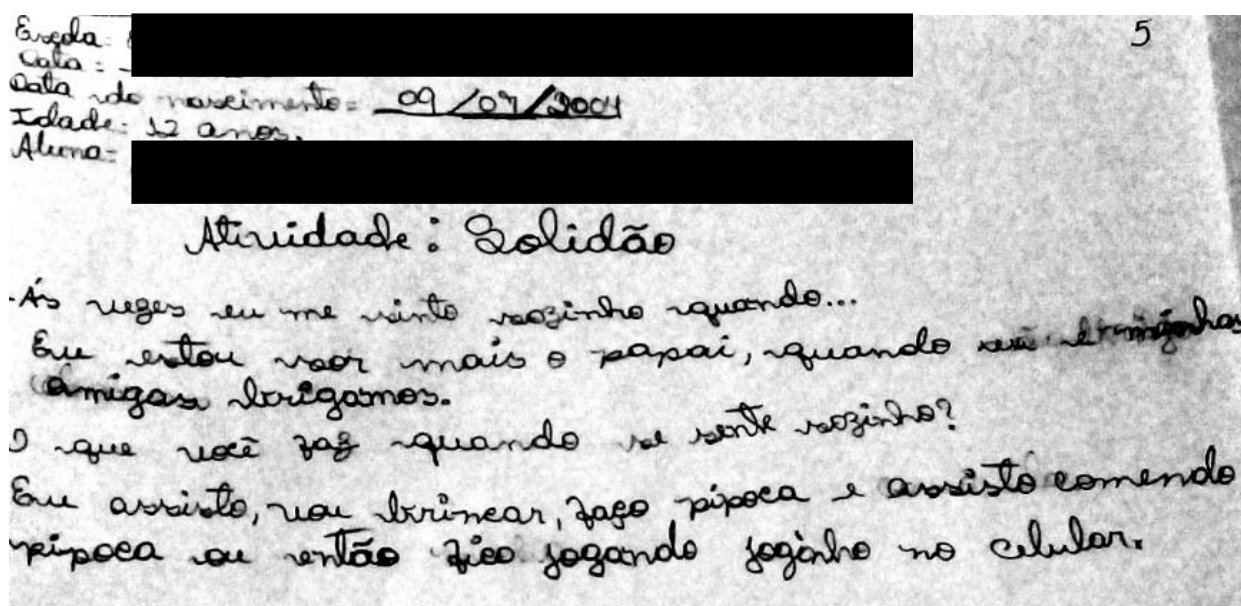 5
Escola:
Data:
Data de nascimento= 09/07/2004
Idade: 12 anos.
Aluna=
Atividade: Solidão
-Ás vezes eu me sinto sozinho quando...
Eu estou sor mais o papai, quando eu e minhas
amigas brigamos.
O que você faz quando se sente sozinho?
Eu assisto, vou brincar, faço pipoca e assisto comendo
pipoca ou então fico jogando joginho no celular.